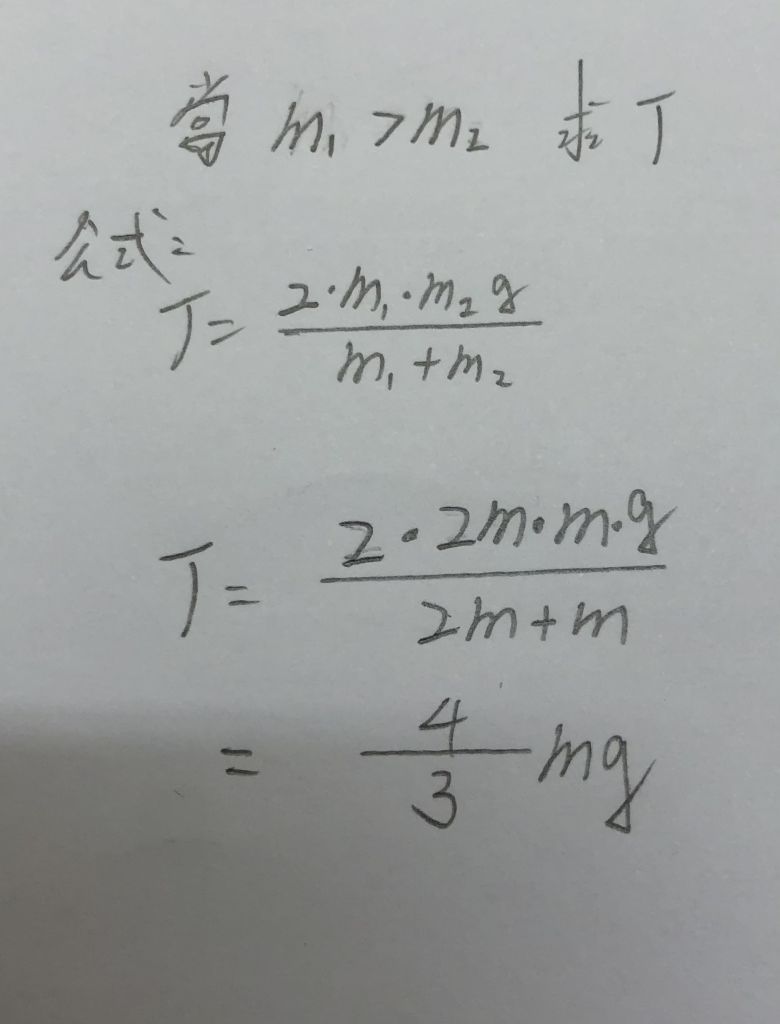 當 m₁ > m₂ 求 T
公式:
T = 2·m₁·m₂g / m₁+m₂
T = 2·2m·m·g / 2m+m
= 4/3 mg